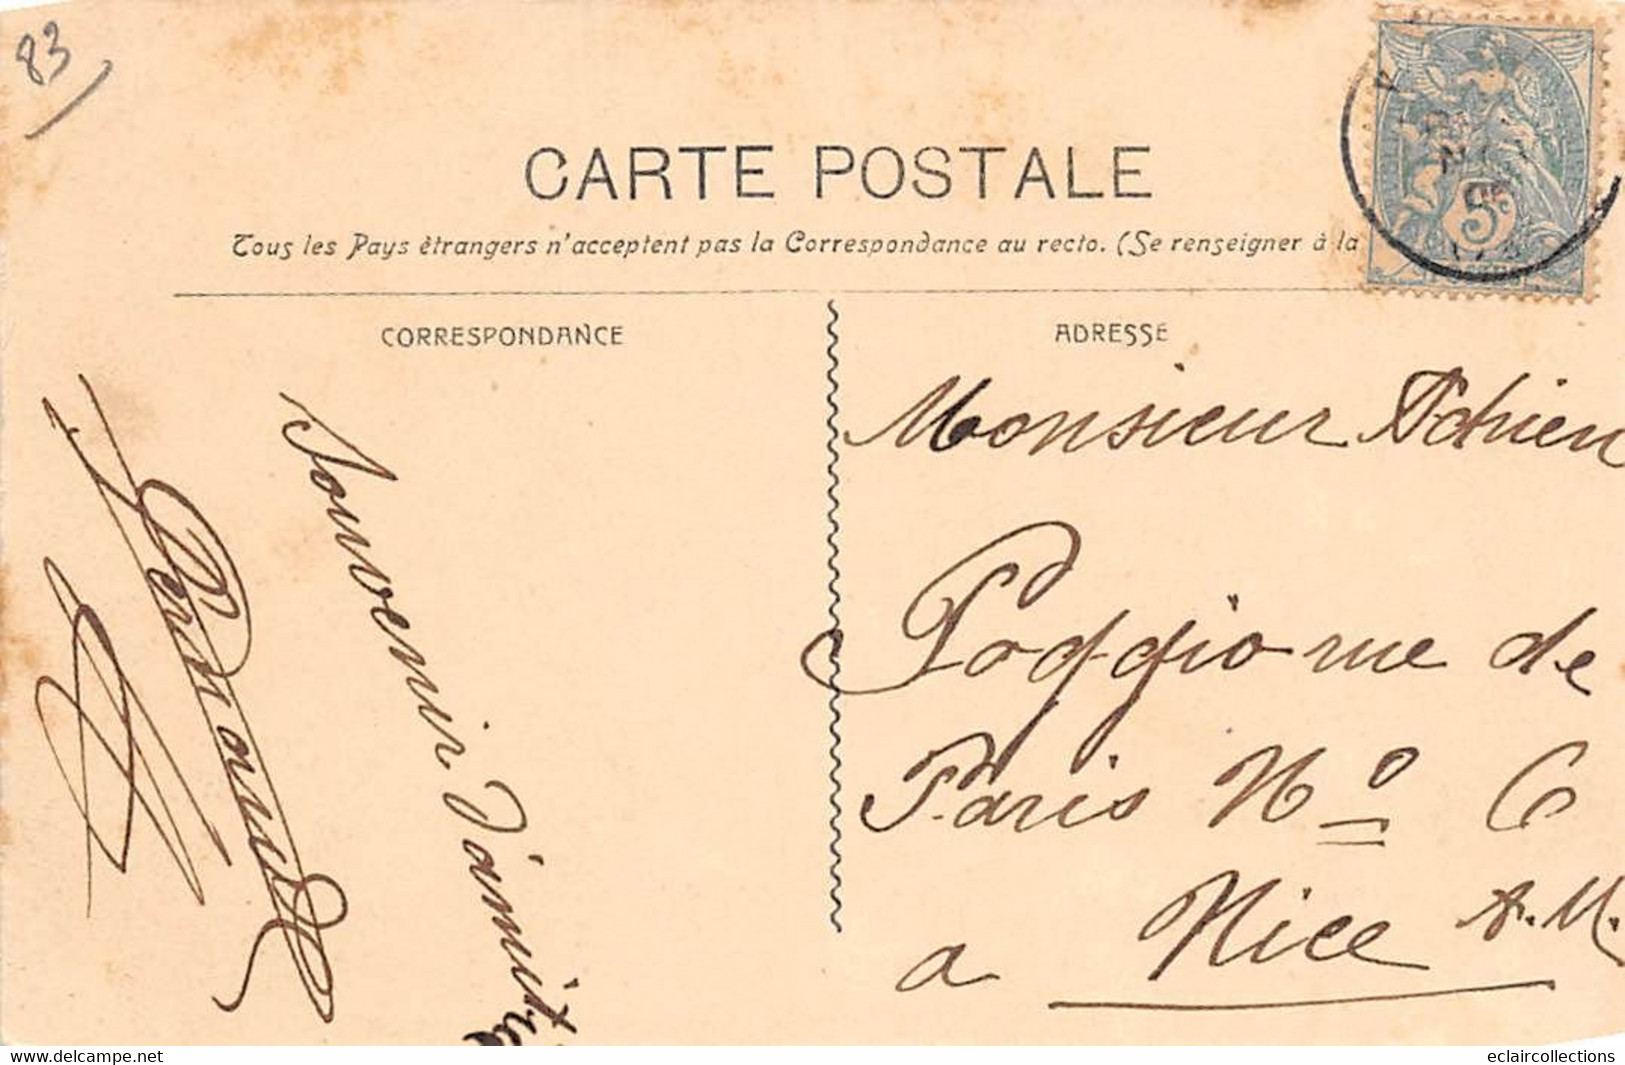 83
CARTE POSTALE
Tous les Pays étrangers n'acceptent pas la Correspondance au recto. (Se renseigner à la
CORRESPONDANCE
ADRESSE
Souvenir d'amitié
Monsieur Adrien
Poggio rue de
Paris Nº 6
a Nice A.M.
5c
delcampe.net
eclaircollections